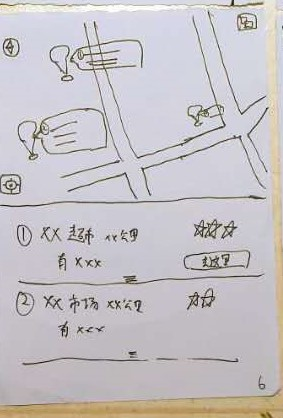 ① XX 超市 XX公里
有 XXX
去这里
② XX 市场 XX公里
有 XXX
6